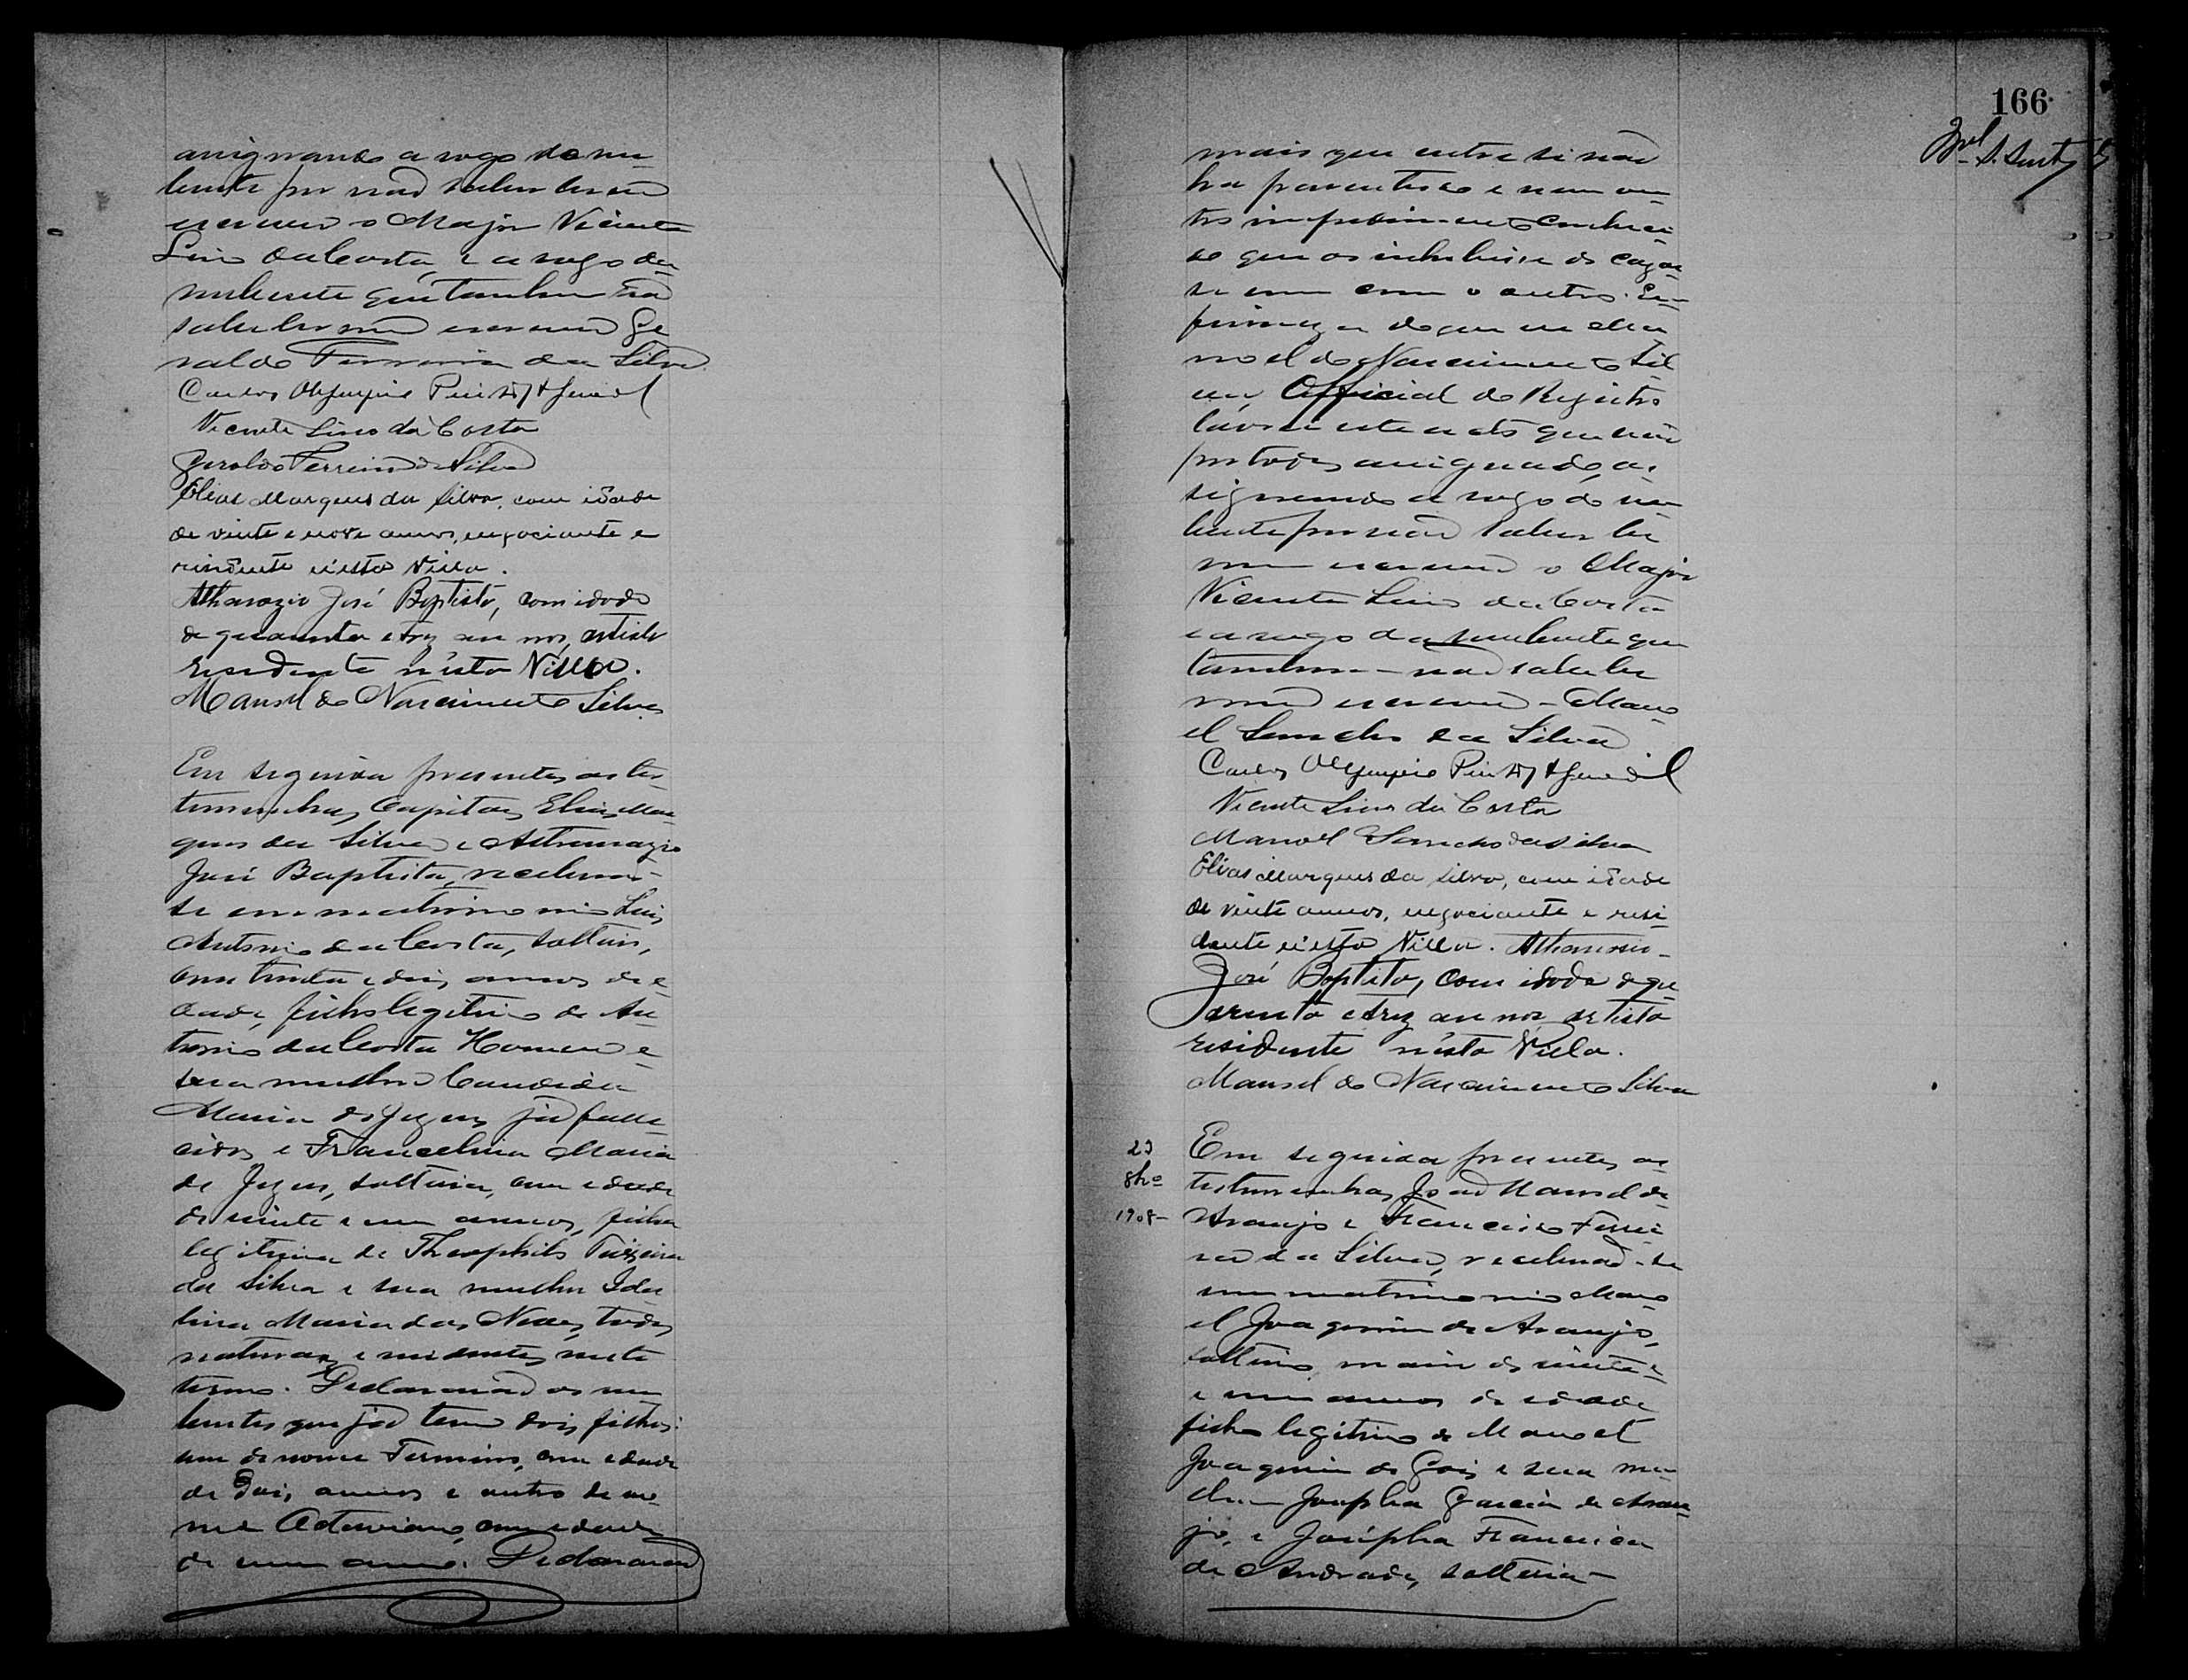 assignando a rogo do nu
bente por não saber ler nem
escrever o Major Vicente
Lino da Costa, e a rogo da
nubente que tambem não
sabe ler nem escrever Ge
raldo Ferreira da Silva.
Carlos Olympio
Vicente Lino da Costa
Geraldo Ferreira da Silva
Elias Marques da Silva, com idade
de vinte e nove annos, negociante e
residente n'esta Villa.
Athanazio José Baptista, com idade
de quarenta e trez an nos, artista
residente n'esta Villa.
Manoel do Nascimento Silva
Em seguida presentes as tes-
temunhas, Capitão Elias Mar
ques da Silva e Athanazio
José Baptista, receberão-
se em matrimonio Luis
Antonio da Costa, solteiro,
com trinta e dois annos de e
dade, filho legitimo de An
tonio da Costa Homem e
sua mulher Candida
Maria de Jezus, já falle
cidos e Francelina Maria
de Jezus, solteira, com edade
de vinte e um annos, filha
legitima de Theophilo Teixeira
da Silva e sua mulher Ida
lina Maria das Neves, todos
naturaes e residentes neste
termo. Declararão os nu
bentes que já tem dois filhos:
um de nome Firmino, com edade
de dois annos e outro de no
me Octaviano, com edade
de um anno. Declararão
166
mais que entre si não
ha parentesco e nem ou
tro impedimento conheci
do que os inhibisse de cazar
se um com o outro. Em
firmeza do que eu Ma
noel do Nascimento Sil
va, Official do Registro
lavrei este acto que vai
por todos assignado, as
signando a rogo do nu
bente por não saber ler
nem escrever o Major
Vicente Lino da Costa
e a rogo da nubente que
tambem não sabe ler
nem escrever - Mano
el Sancho da Silva
Carlos Olympio
Vicente Lino da Costa
Manoel Sancho da Silva
Elias Marques da Silva, com idade
de vinte annos, negociante e resi
dente n'esta Villa. Athanasio
José Baptista, com idade de qu
arenta e trez an nos, artista
residente n'esta Villa.
Manoel do Nascimento Silva
23
8bro
1908
Em seguida presentes as
testemunhas João Manoel de
Araujo e Francisco Ferrei
ra da Silva, receberão-se
em matrimonio Mano
el Joaquim de Araujo,
solteiro, maior de vinte
e um annos de edade
filho legitimo de Manoel
Joaquim de Gois e sua mu
lher Josepha Garcia de Arau
jo, e Josépha Francisca
de Andrade, solteira